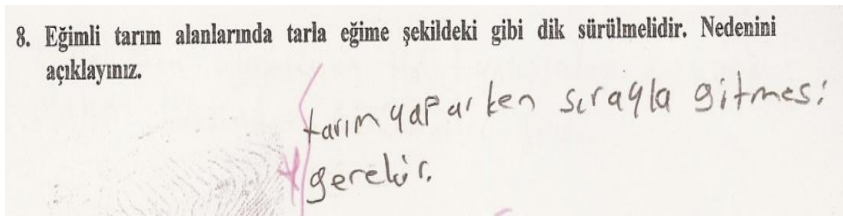 8. Eğimli tarım alanlarında tarla eğime şekildeki gibi dik sürülmelidir. Nedenini
açıklayınız.
tarım yaparken sırayla gitmesi
gerekir.